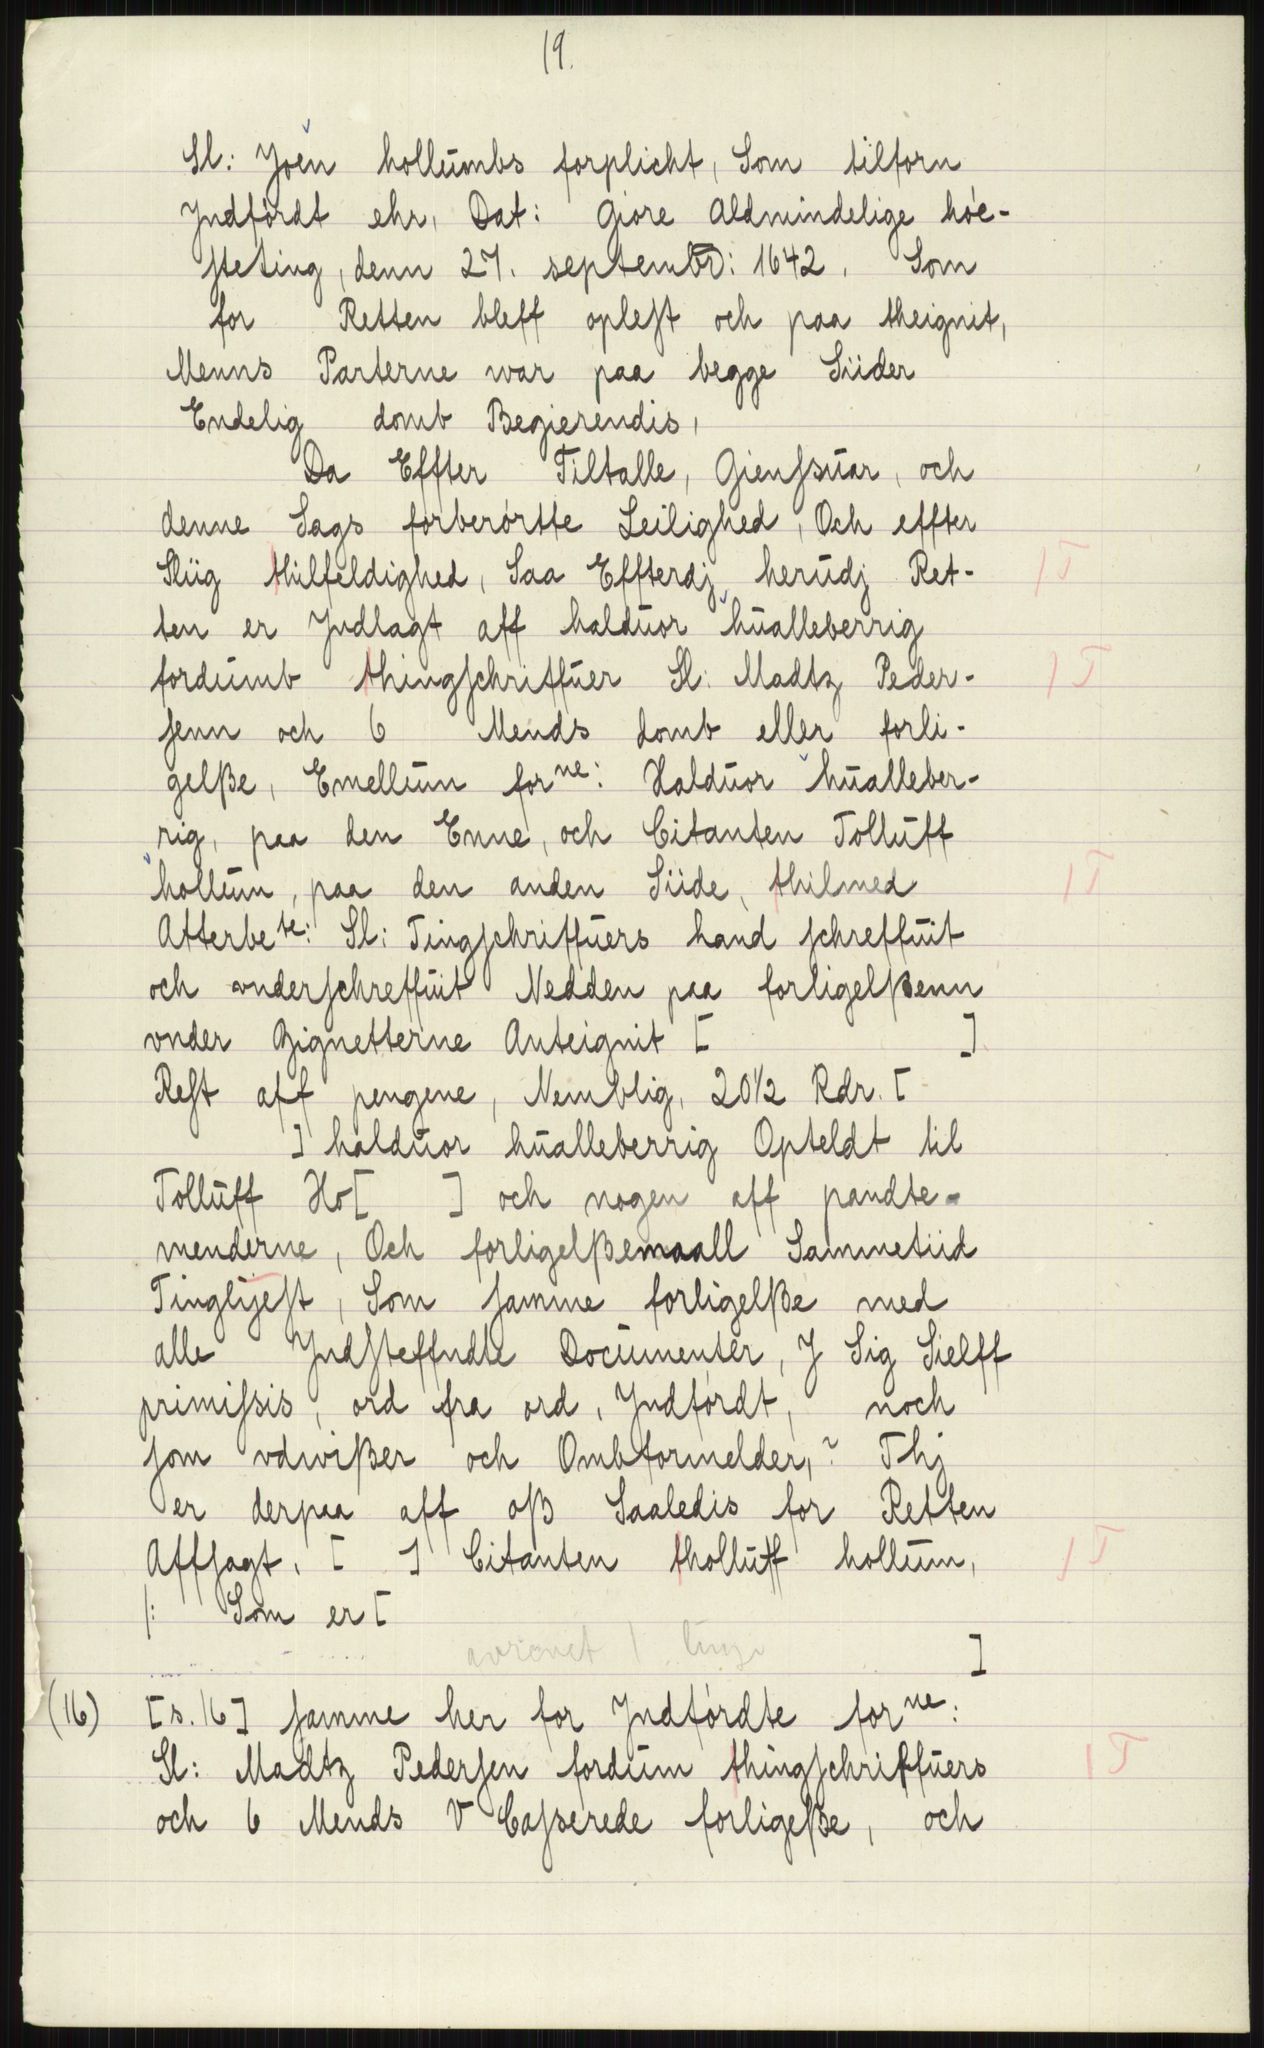 19.
Sl: Joen hollumbs forplicht, Som tilforn
Jndfördt ehr, Dat: Giöre Aldmindelige höe-
steting, denn 27. septembr: 1642. Som
for Retten bleff oplest och paa theignit,
Menns Parterne war paa begge Siider
Endelig domb Begierendis,
Da Effter Tiltalle, Giensuar, och
denne Sags forberörtte Leilighed, Och effter
Sliig thilfeldighed, Saa Effterdj herudj Ret-
ten er Jndlagt aff haldúor húalleberrig
fordúmb thingschriffúer Sl: Madtz Peder-
senn och 6 Mends domb eller forli-
gelße, Emellum for ne: Halduor húalleber-
rig, paa den Enne, och Citanten Tollúff
hollúm, paa den anden Siide, thilmed
Atterbe te: Sl: Tingschriffúers hand schreffúit
och vnderschreffúit Nedden paa forligelßenn
vnder Zignetterne Anteignit [ ]
Rest aff pengene, Nemblig, 20½ Rdr. [
] haldúor húalleberrig Opteldt til
Tollúff Ho[ ] och nogen aff pandte-
menderne, Och forligelßemaall Sammetiid
Tinglyest, Som samme forligelße med
alle Jndsteffndte Documenter, J Sig Sielff
primissis, ord fra ord, Jndfördt, noch
som vdwißer och Ombformelder,? Thj
er derpaa aff oß Saaledis for Retten
Affsagt, [ ] Citanten thollúff hollúm,
/: Som er [
avrevet 1 linje
]
(16) [s. 16] samme her for Jndfördte for ne:
Sl: Madtz Pedersen fordúm thingschriffúers
och 6 Mends V Casserede forligeße, och